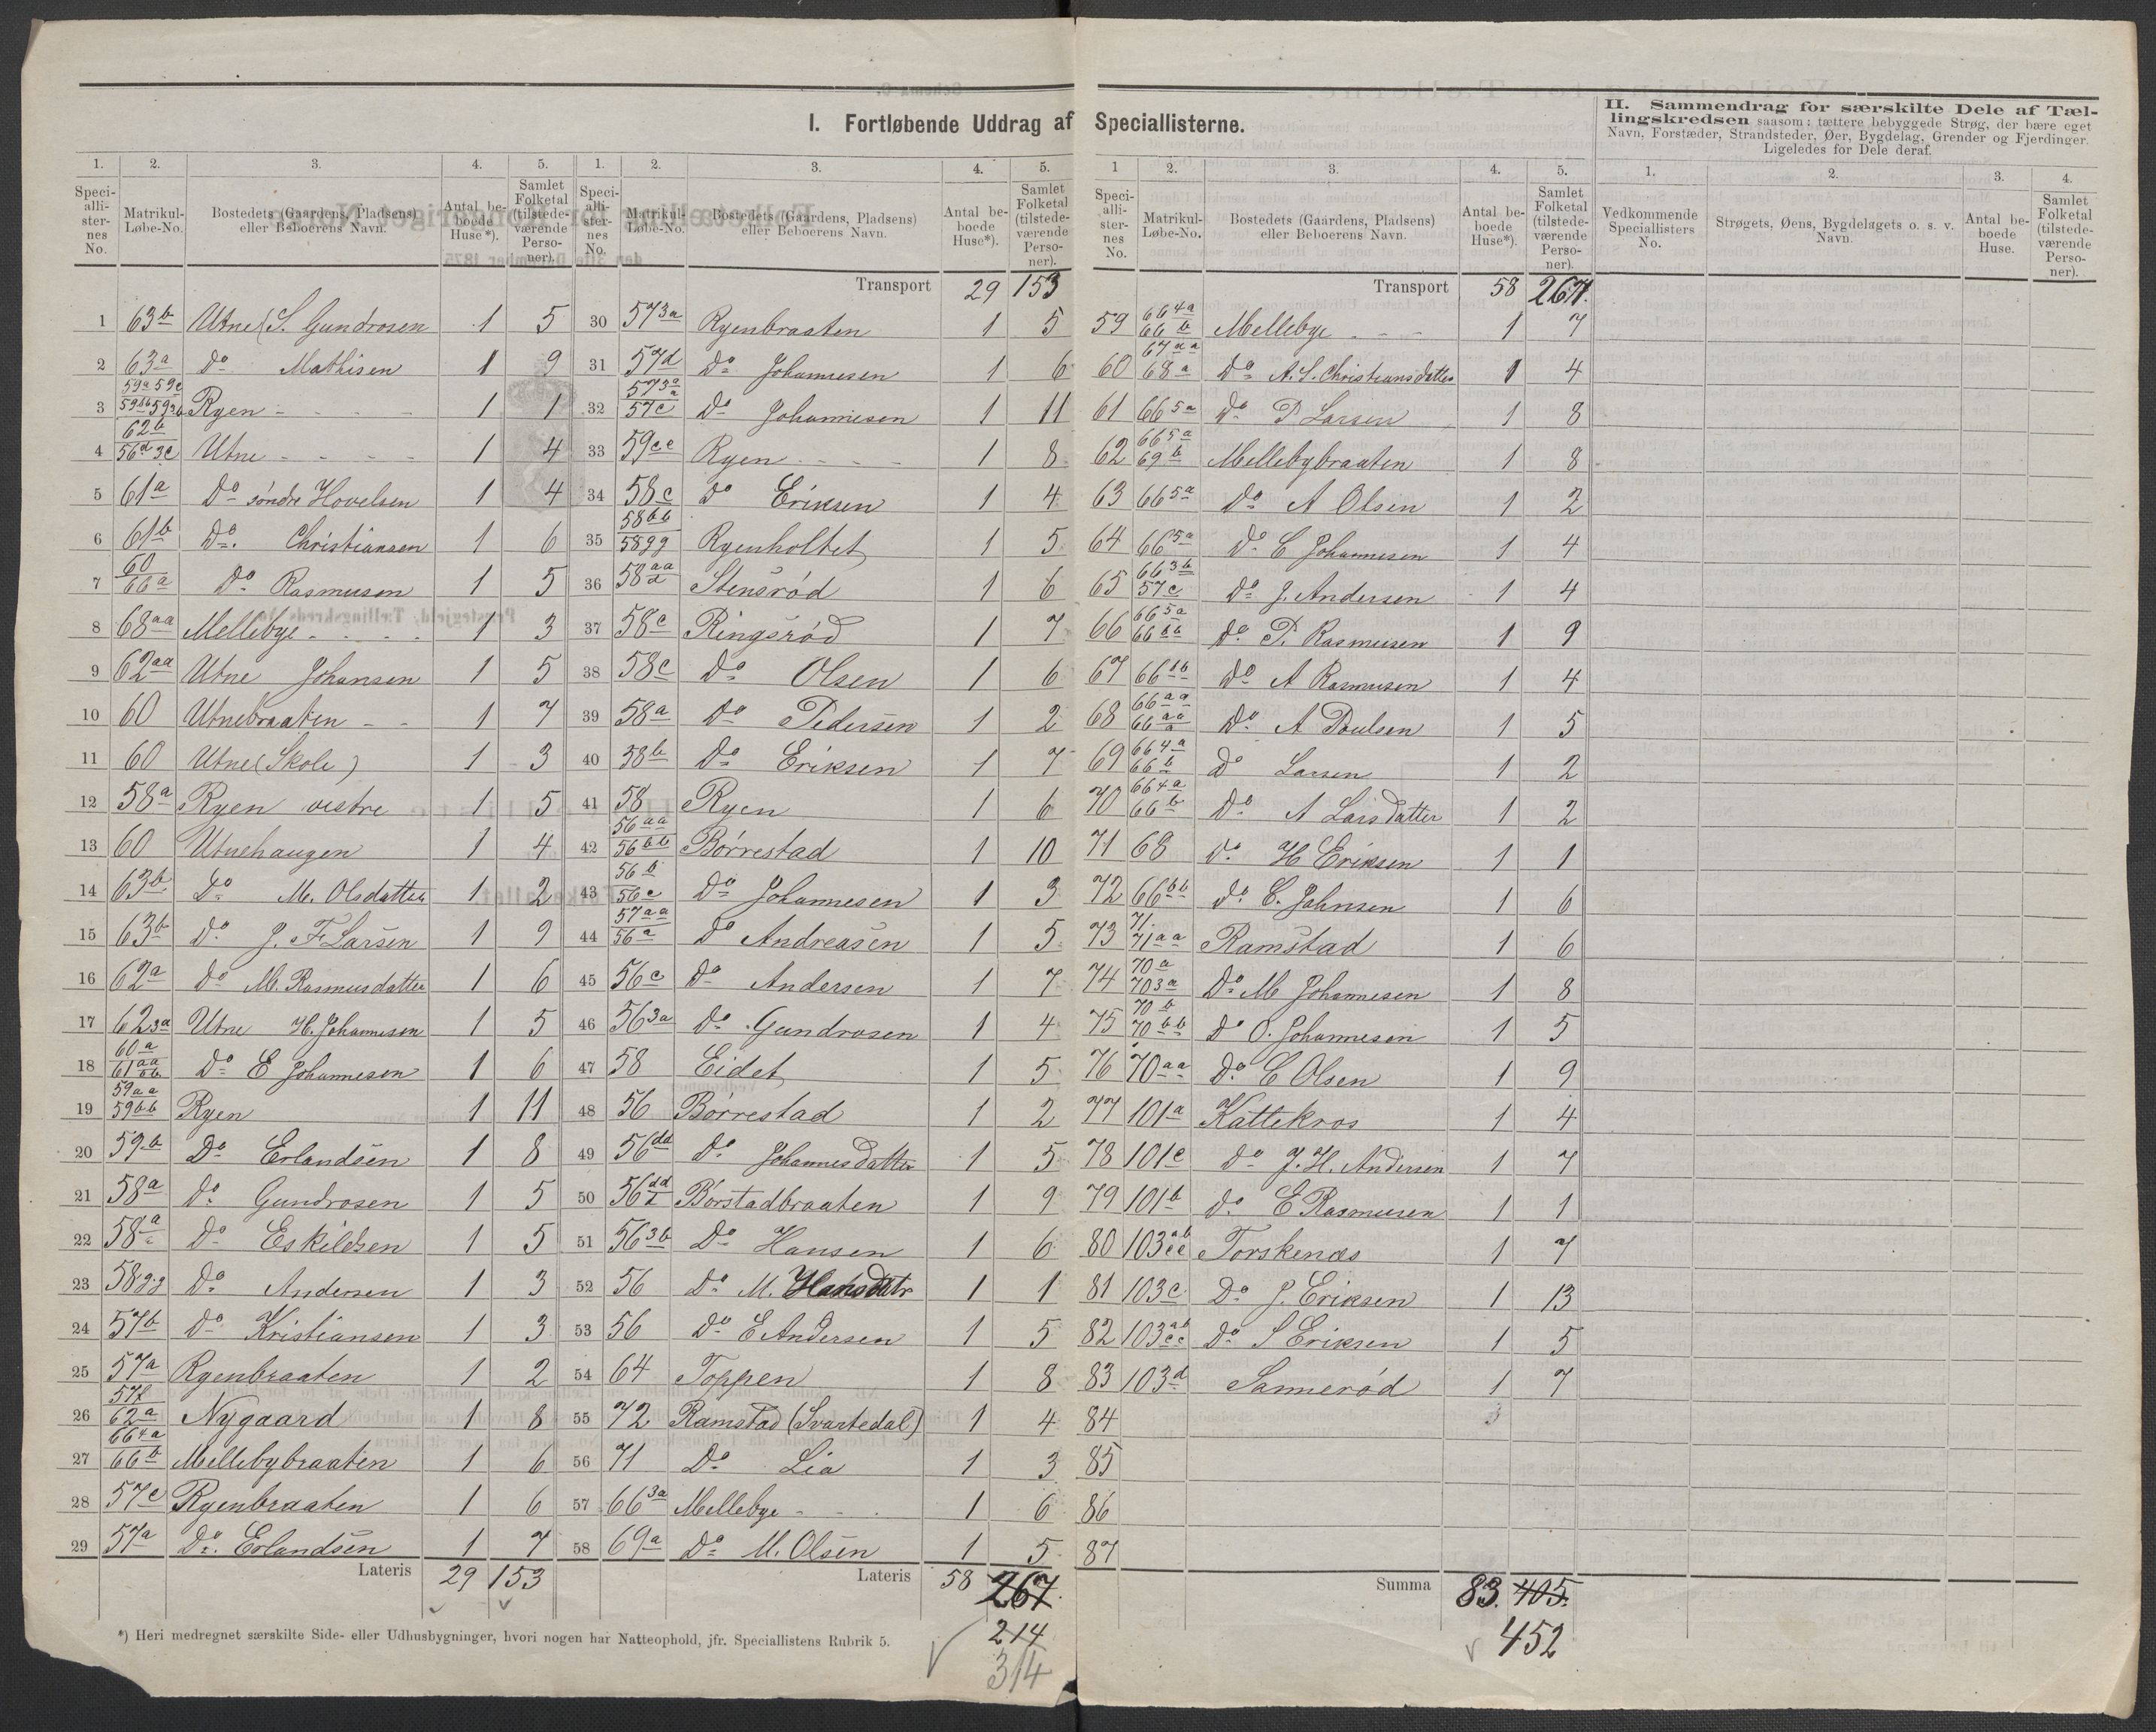 I. Fortløbende Uddrag af Speciallisterne.
II. Sammendrag for særskilte Dele af Tæl-
lingskredsen saasom: tættere bebyggede Strøg, der bære eget
Navn, Forstæder, Strandsteder, Øer, Bygdelag, Grender og Fjerdinger.
Ligeledes for Dele deraf.
1. 2. 3. 4. 5.
Speci-alli-ster-nes No. Matrikul-Løbe-No. Bostedets (Gaardens, Pladsens) eller Beboerens Navn. Antal be-boede Huse*). Samlet Folketal (tilstede-værende Perso-ner).
1 63b Utne (S. Gundrosen 1 5
2 63a Do Mathisen 1 9
3 59a 59c 59bb 59ab Ryen 1 1
4 62b 56d 3c Utne 1 4
5 61a Do søndre Hovelsen 1 4
6 61b Do. Christiansen 1 6
7 60 66a Do Rasmusen 1 5
8 68aa Mellebye 1 3
9 62aa Utne Johansen 1 5
10 60 Utnebraaten 1 7
11 60 Utne (Skole) 1 3
12 58a Ryen vestre 1 5
13 60 Utnehaugen 1 4
14 63b Do M. Olsdatter 1 2
15 63b Do J. F Larsen 1 9
16 62a Do M. Rasmusdatter 1 6
17 62 3a Utne H. Johannesen 1 5
18 60a 61aa bb Do E Johannesen 1 6
19 59aa 59bb Ryen 1 11
20 59b Do Erlandsen 1 8
21 58a Do Gundrosen 1 5
22 58a Do Eskildsen 1 5
23 58gg Do Andersen 1 3
24 57b Do Kristiansen 1 3
25 57a Ryenbraaten 1 2
26 57f 62a Nygaard 1 8
27 66 4a 66b Mellebybraaten 1 6
28 57c Ryenbraaten 1 6
29 57a Do. Erlandsen 1 7
Lateris 29 153
*) Heri medregnet særskilte Side- eller Udhusbygninger, hvori nogen har Natteophold, jfr. Speciallistens Rubrik 5.
1. 2. 3. 4. 5.
Speci-alli-ster-nes No. Matrikul-Løbe-No. Bostedets (Gaardens, Pladsens) eller Beboerens Navn. Antal be-boede Huse*). Samlet Folketal (tilstede-værende Perso-ner).
Transport 29 153
30 57 3a Ryenbraaten 1 5
31 57d Do Johannesen 1 6
32 57 3a 57c Do Johannesen 1 11
33 59cc Ryen 1 8
34 58c Do Eriksen 1 4
35 58bb 58gg Ryenholtet 1 5
36 58aa d Stensrød 1 6
37 58c Ringsrød 1 7
38 58c Do Olsen 1 6
39 58a Do Pedersen 1 2
40 58b Do Eriksen 1 7
41 58 Ryen 1 6
42 56aa 56bb Børrestad 1 10
43 56b 56c Do Johannesen 1 3
44 57aa 56a Do Andreasen 1 5
45 56c Do Andersen 1 7
46 56 3a Do Gundrosen 1 4
47 58 Eidet 1 5
48 56 Børrestad 1 2
49 56dd Do Johannesdatter 1 5
50 56dd Børstadbraaten 1 9
51 56 3b Do Hansen 1 6
52 56 Do M. Hansdatr 1 1
53 56 Do E Andersen 1 5
54 64 Toppen 1 8
55 72 Ramstad (Svartedal) 1 4
56 71 Do Lia 1 3
57 66 3a Mellebye 1 6
58 69a Do M. Olsen 1 5
Lateris 58 267
214
314
1 2. 3. 4. 5.
Speci-alli-ster-nes No. Matrikul-Løbe-No. Bostedets (Gaardens, Pladsens) eller Beboerens Navn. Antal be-boede Huse*). Samlet Folketal (tilstede-værende Perso-ner).
Transport 58 267.
59 66 4a 66b Mellebye 1 7
60 67aa 68a Do A. S. Christiansdatter 1 4
61 66 5a Do P Larsen 1 8
62 66 5a 69b Mellebybraaten 1 8
63 66 5a Do A Olsen 1 2
64 66 5a Do C Johannesen 1 4
65 66 3b 57c Do J. Andersen 1 4
66 66 5a 66bb Do P. Rasmusen 1 9
67 66bb Do A Rasmusen 1 4
68 66aa 66aa Do A Poulsen 1 5
69 66 4a 66b Do Larsen 1 2
70 66 4a 66b Do A Larsdatter 1 2
71 68 Do H Eriksen 1 1
72 66bb Do C. Johnsen 1 6
73 71. 71aa Ramstad 1 6
74 70a 70 3a Do M Johannesen 1 8
75 70b 70bb Do O. Johannesen 1 5
76 70aa Do C Olsen 1 9
77 101a Kattekros 1 4
78 101c Do J. H. Andersen 1 7
79 101b Do E Rasmusen 1 1
80 103ab cc Torskenæs 1 7
81 103c Do J. Eriksen 1 13
82 103ab cc Do S Eriksen 1 5
83 103d Sannerød 1 7
84
85
86
87
Summa 83. 405.
452
1. 2. 3. 4.
Vedkommende Speciallisters No. Strøgets, Øens, Bygdelagets o. s. v. Navn. Antal be-boede Huse. Samlet Folketal (tilstede-værende Perso-ner).